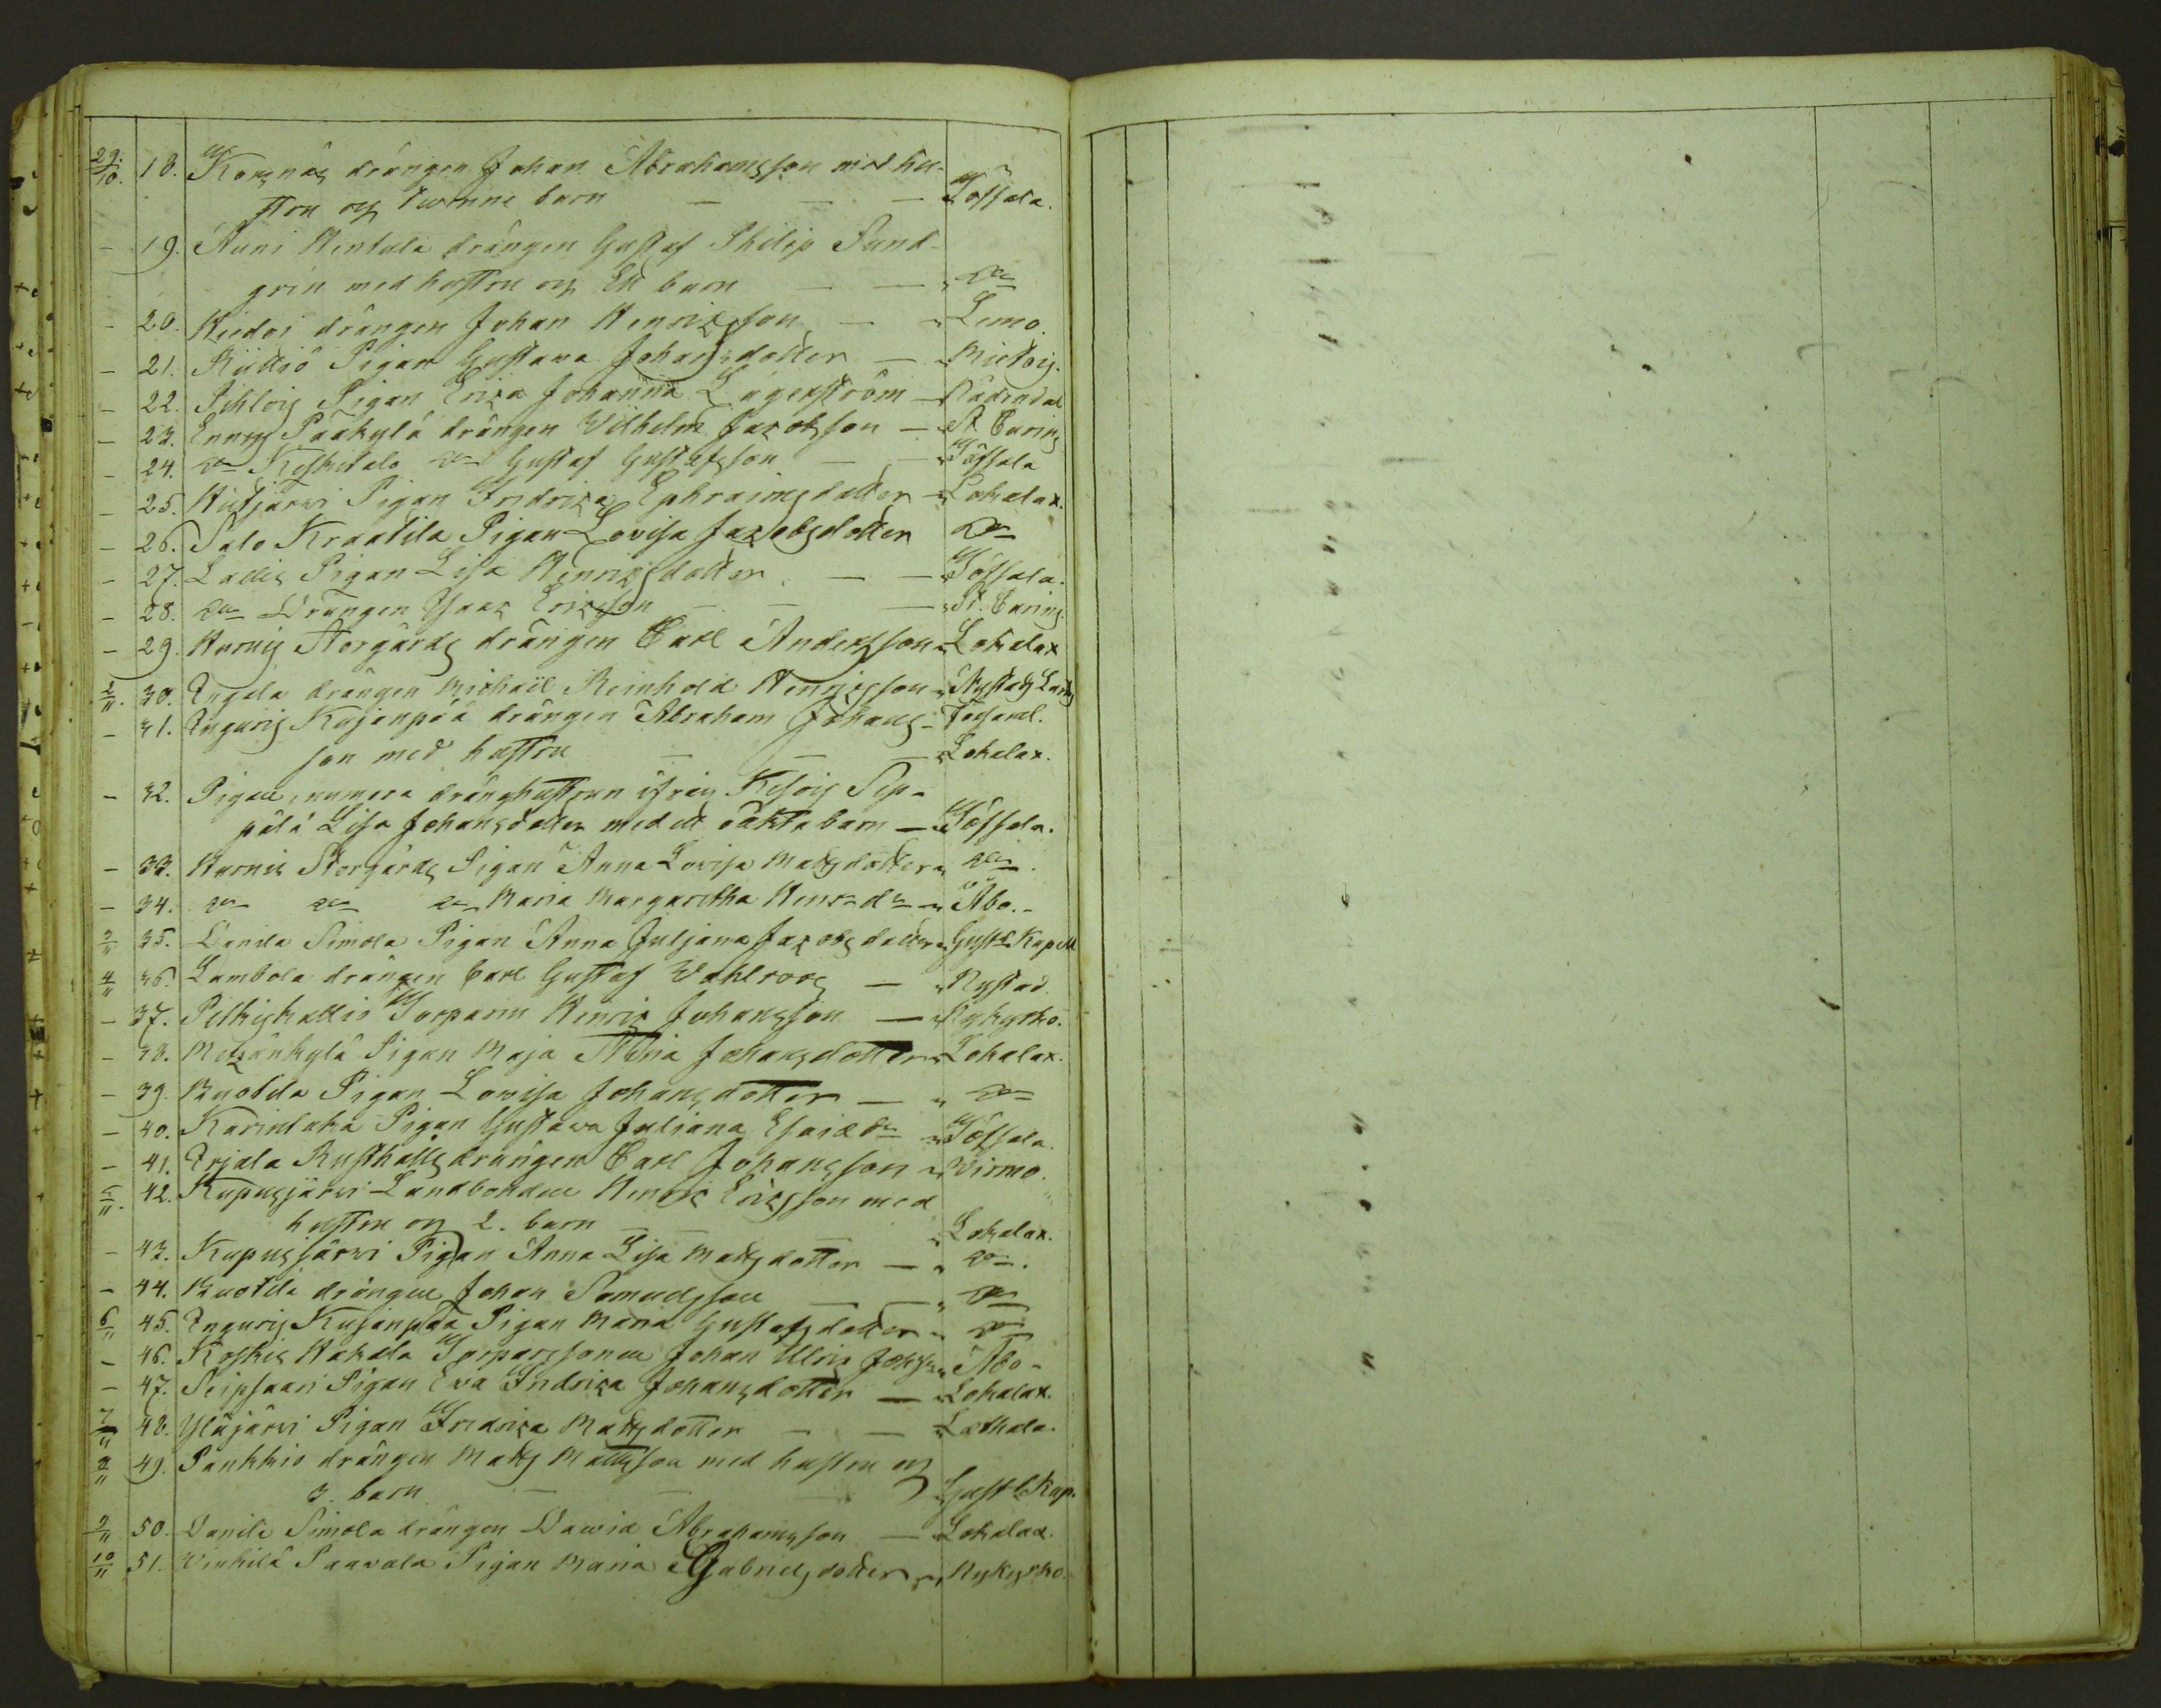 29/10. 18. Korsnäs drängen Johan Abrahamsson med hu-
stru och twenne barn — — — Töfsala.
— 19. Auni Hentula drängen Gustaf Philip Sund-
grén med hustru och Ett barn — — " Do
— 20. Hiedoi drängen Johan Henricsson — " Lemo.
— 21. Riittiö Pigan Gustava Johansdotter — " Mietois.
— 22. Pihlois Pigan Erica Johanna Lagerström — Nådendal
— 23. Ennys Pääkylä drängen Wilhelm Jacobsson — St Carins
— 24. Do Keskitalo Do Gustaf Gustafsson — — " Töfsala
— 25. Hietjärvi Pigan Fredrica Ephraimsdotter — " Lokalax.
— 26. Salo Kraatila Pigan Lovisa Jacobsdotter Do
— 27. Lallis Pigan Lisa Henricsdotter — — " Töfsala.
— 28. Do Drängen Isaac Ericsson — — " St. Carins
— 29. Hurnis Storgårds drängen Carl Andersson " Lokalax
2/11. 30. Ingela drängen Michaël Reinhold Henricsson " Nystads Landsförsaml.
— 31. Inguris Kujanpää drängen Abraham Johans-
son med hustru — — — " Lokalax.
— 32. Pigan, numera dränghustrun ifrån Kesois Sep-
pälä Lisa Johansdotter med ett oäkta barn — " Töfsala.
— 33. Hurnis Storgårds Pigan Anna Lovisa Matsdotter " Do.
— 34. Do Do Do Maria Margaretha Henrsdr — " Åbo. -
3/11 35. Danila Simola Pigan Anna Juljana Jacobsdotter " Gust:s Kapell
4/11 36. Lambola drängen Carl Gustaf Wahlroos — " Nystad.
— 37. Pitkiskallio Torparen Henric Johansson — " Nykyrko.
— 38. Metzänkylä Pigan Maja Stina Johansdotter " Lokalax.
— 39. Ruotila Pigan Lovisa Johansdotter — " Do
— 40. Karintaka Pigan Gustava Juliana Esaiædr — " Töfsala.
— 41. Erjala Rusthålls drängen Carl Johansson " Wirmo.
5/11. 42. Kupusjärvi Landbonden Henric Ericsson med
hustru och 2. barn — — " Lokalax.
— 43. Kupusjärvi Pigan Anna Lisa Matsdotter — " Do.
— 44. Ruotila drängen Johan Samuelsson — — " Do
6/11 45. Inguris Kujanpää Pigan Maria Gustafsdotter " Do
— 46. Koskis Hakala Torparesonen Johan Ulric Johsson " Åbo -
— 47. Seipsaari Pigan Eva Fredrica Johansdotter — " Lokalax.
7/11 48. Yläjärvi Pigan Fredrica Matsdotter — — " Lethala.
8/11 49. Pankkio drängen Mats Mattsson med hustru och
3. barn — — " Gust:s Kap.
9/11 50. Danila Simola drängen Dawid Abrahamsson — " Lokalax.
10/11 51. Winkilä Paavola Pigan Maria Gabrielsdotter " Nykyrko.